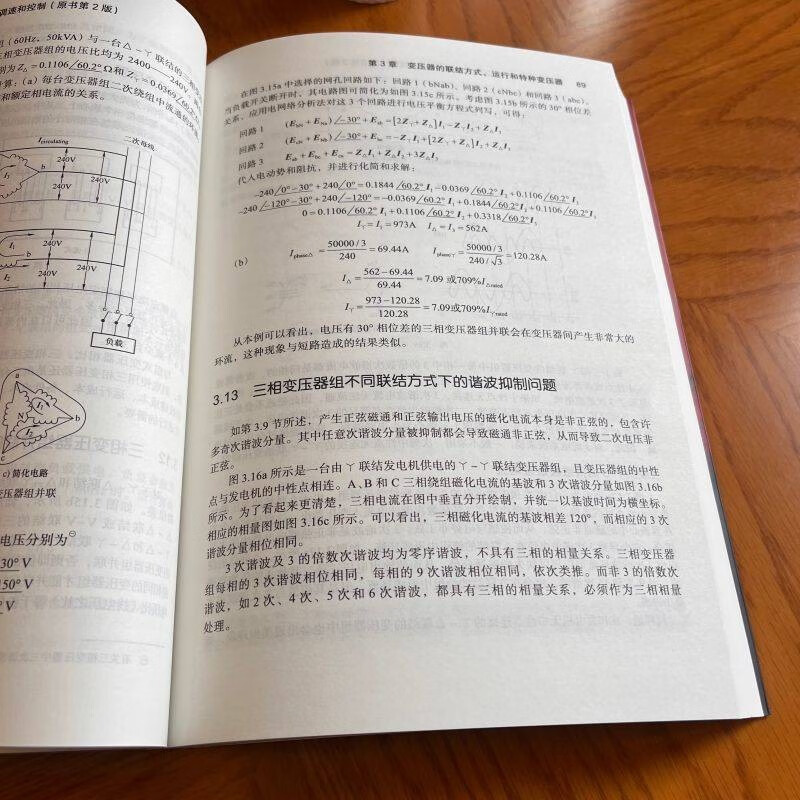 调速和控制（原书第 2 版）
（60Hz，50kVA）与一台△-Y联结的三相变
三相变压器组的电压比均为 2400——240V
别为Z△=0.1106/60.2° Ω和ZY=0.0369/60.2
算：(a) 每台变压器组二次绕组中流通的环
和额定相电流的关系。
Icirculating
二次母线
240V 240V 240V
b
I3
240V 240V
I1
240V
I2
负载
a
I3
N
I1
b
I2
c
c) 简化电路
变压器组并联
电压分别为
30° V
150° V
° V
第 3 章 变压器的联结方式、运行和特种变压器 89
在图 3.15a 中选择的网孔回路如下：回路 1（bNab）、回路 2（cNbc）和回路 3（abc），
当负载开关断开时，其电路图可简化为如图 3.15c 所示，考虑图 3.15b 所示的30° 相位差
关系，应用电网络分析法对这 3 个回路进行电压平衡方程式列写，可得：
回路 1
回路 2
回路 3
代入电动势和阻抗，并进行化简和求解：
-240/0°-30°+240/0°=0.1844/60.2° I1-0.0369/60.2° I2+0.1106/60.2° I3
-240/-120°-30°+240/-120°=-0.0369/60.2° I1+0.1844/60.2° I2+0.1106/60.2° I3
0=0.1106/60.2° I1+0.1106/60.2° I2+0.3318/60.2° I3
IY=I1=973A I△=I3=562A
(b) Iphase△=50000/3 / 240=69.44A IphaseY=50000/3 / 240/√3=120.28A
I△=562-69.44 / 69.44=7.09 或709%I△rated
IY=973-120.28 / 120.28=7.09或709%IYrated
从本例可以看出，电压有 30° 相位差的三相变压器组并联会在变压器间产生非常大的
环流，这种现象与短路造成的结果类似。
3.13 三相变压器组不同联结方式下的谐波抑制问题
如第 3.9 节所述，产生正弦磁通和正弦输出电压的磁化电流本身是非正弦的，包含许
多奇次谐波分量。其中任意次谐波分量被抑制都会导致磁通非正弦，从而导致二次电压非
正弦。
图 3.16a 所示是一台由Y联结发电机供电的Y-Y联结变压器组，且变压器组的中性
点与发电机的中性点相连。A、B 和 C 三相绕组磁化电流的基波和 3 次谐波分量如图 3.16b
所示。为了看起来更清楚，三相电流在图中垂直分开绘制，并统一以基波时间为横坐标。
相应的相量图如图 3.16c 所示。可以看出，三相磁化电流的基波相差 120°，而相应的 3 次
谐波分量相位相同。
3 次谐波及 3 的倍数次谐波均为零序谐波，不具有三相的相量关系。三相变压器
组每相的 3 次谐波相位相同，每相的 9 次谐波相位相同，依次类推。而非 3 的倍数次
谐波，如 2 次、4 次、5 次和 6 次谐波，都具有三相的相量关系，必须作为三相相量
处理。